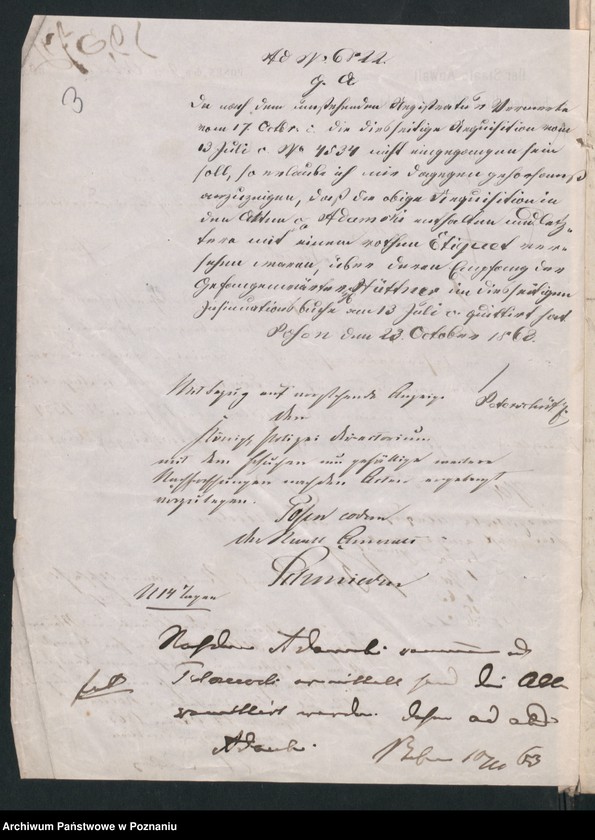 3
Ad No 6822.
Da nach dem umstehenden Registratur Vermerke
vom 17 Octbr. c. die diesseitige Requisition vom
13 Juli c. No 4534 nicht eingegangen sein
soll, so erlaube ich mir dagegen gehorsamst
anzuzeigen, daß die obige Requisition in
den Akten c/a Adamski enthalten und letz-
tere mit einem rothen Etiquet ver-
sehen waren, über deren Empfang der
Gefangenwärter Hüttner im diesseitigen
Insinuationsbuche am 13 Juli c. quittirt hat
Posen den 23. October 1863.
Mit Bezug auf vorstehende Anzeige
dem
Königl. Polizei Directorium
mit dem Ersuchen um gefällige weitere
Nachforschungen nach den Acten ergebenst
vorzulegen.
Posen eodem
der Staats Anwalt
Schmieden
N 14 Tagen
Nachdem Adamski
ermittelt sind die
werden. ad acta
Adamski.
63
Archiwum Państwowe w Poznaniu